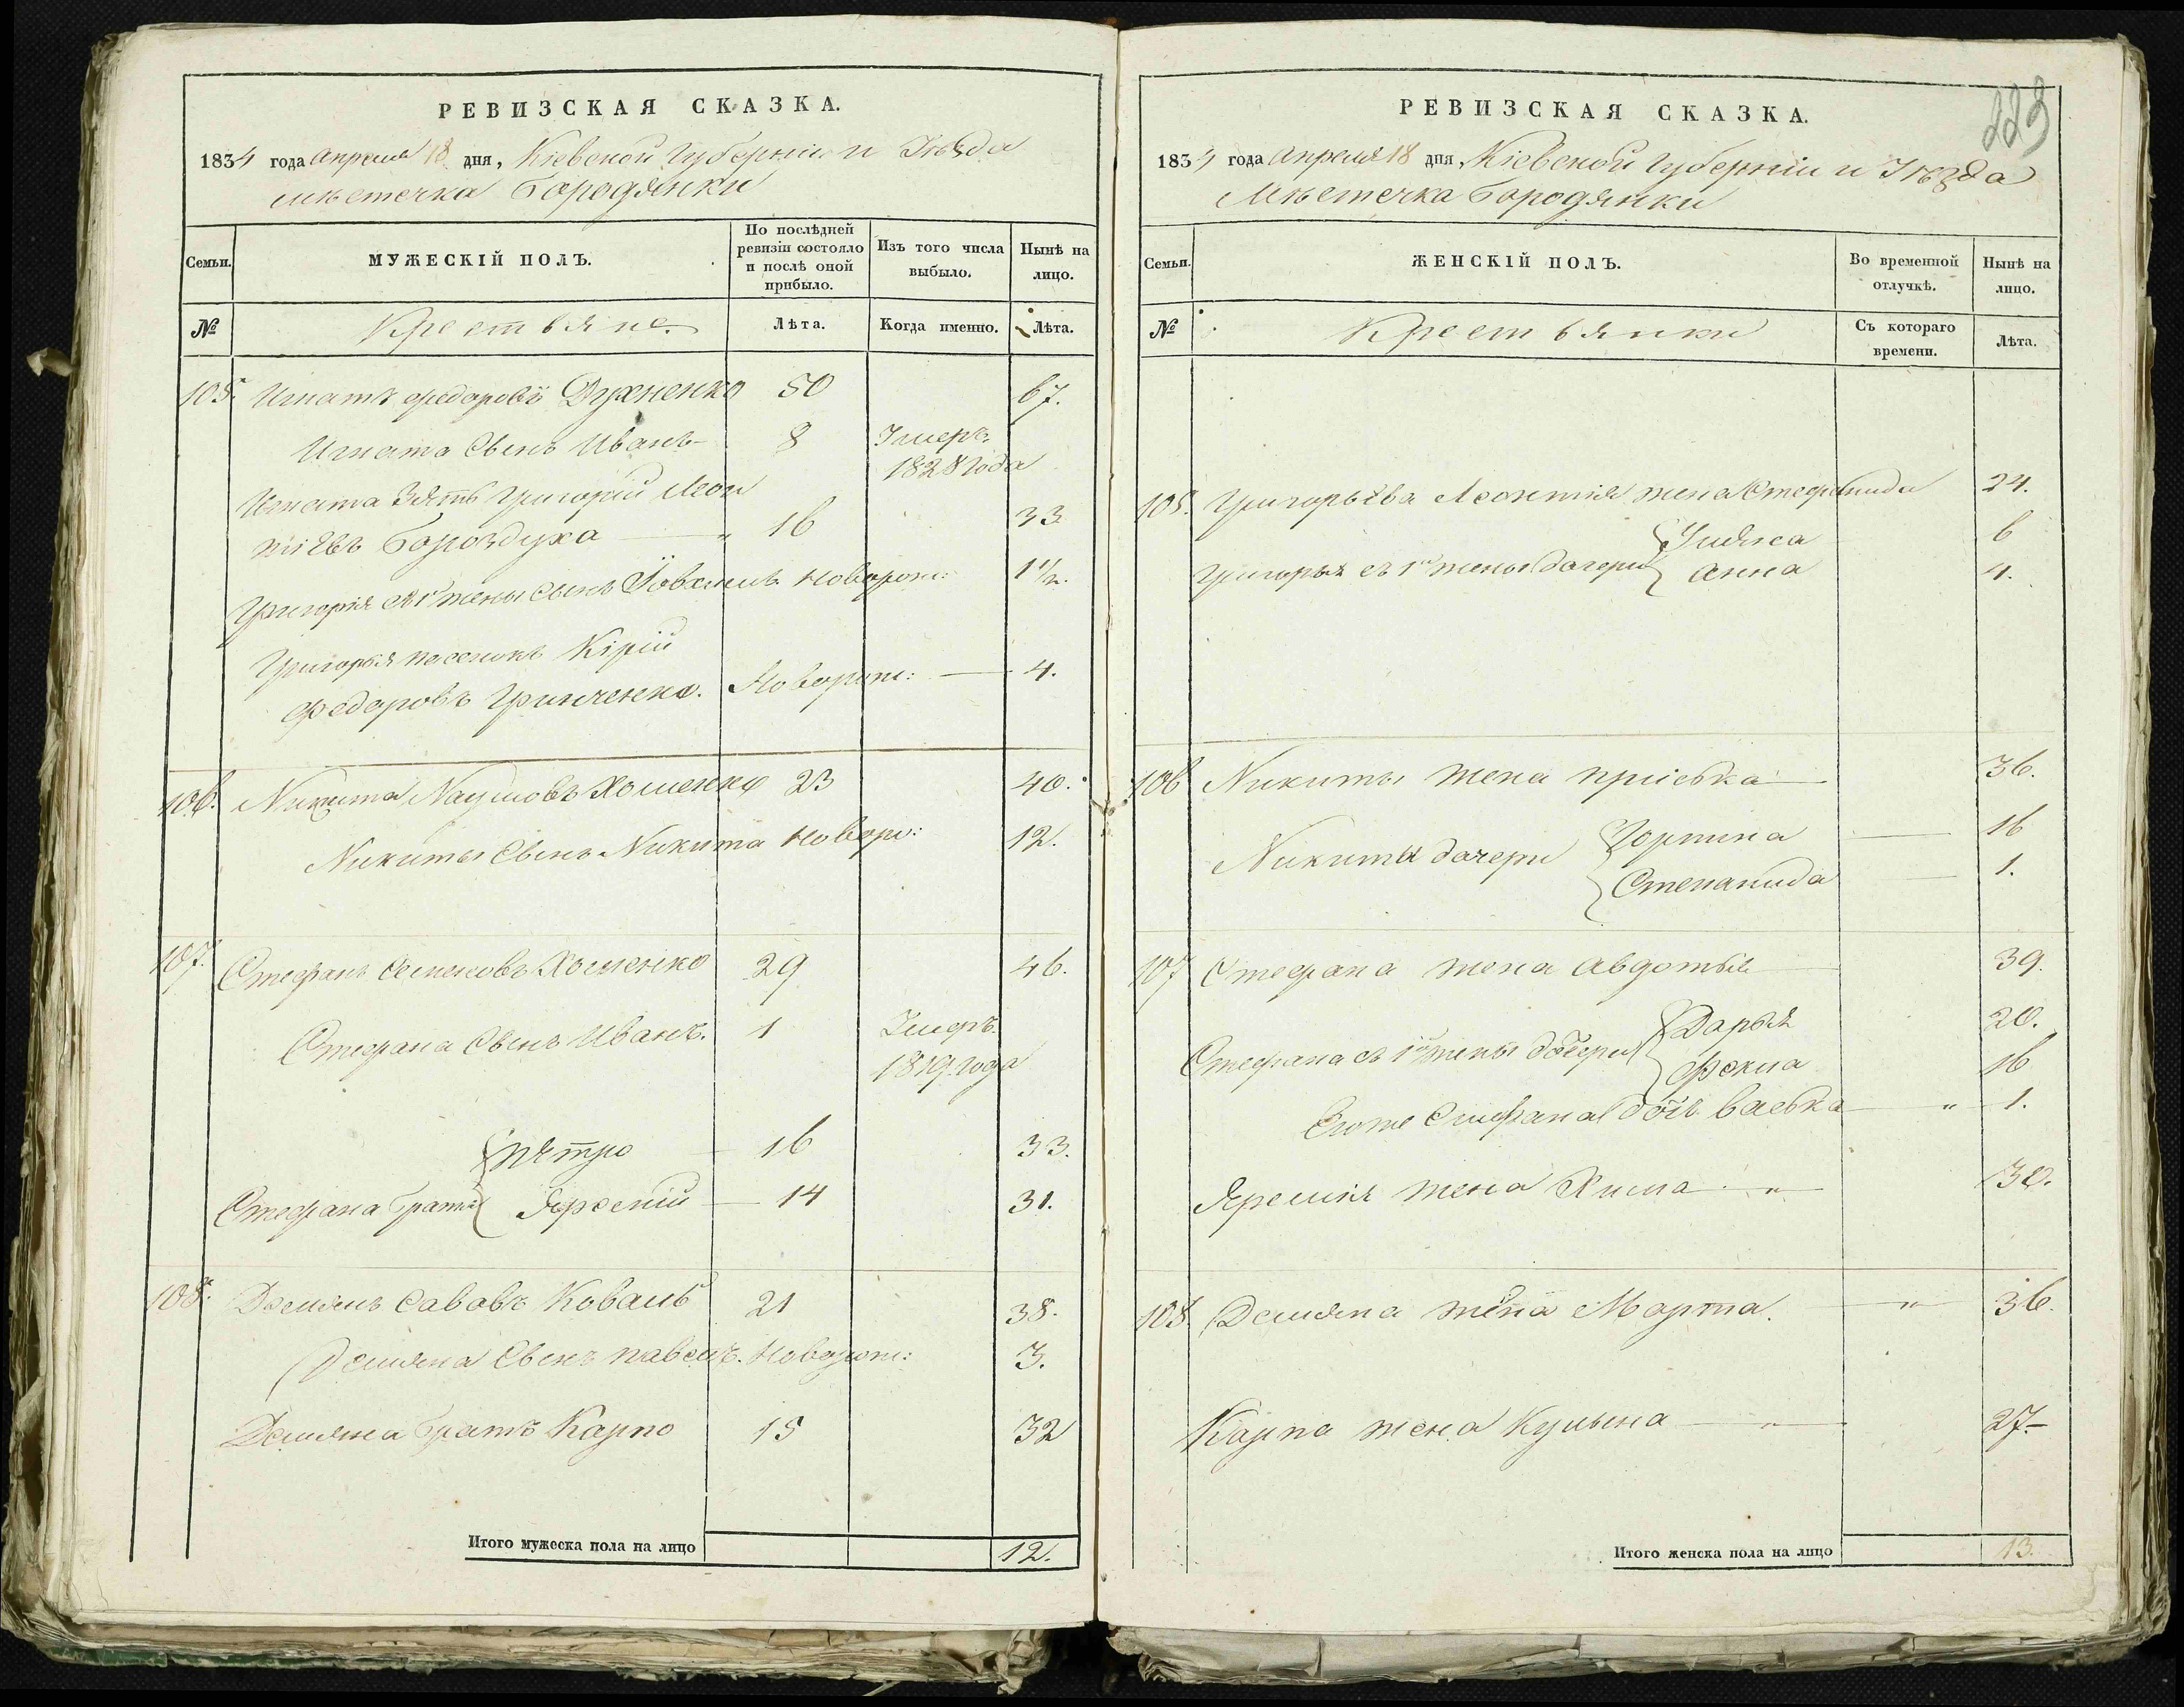 РЕВИЗСКАЯ СКАЗКА.
1834 года Апреля 18 дня, Кіевской Губерніи и Уѣзда
мѣстечка Бородянки
Семьи.
МУЖЕСКІЙ ПОЛЪ.
По послѣдней
ревизіи состояло
и послѣ оной
прибыло.
Изъ того числа
выбыло.
Нынѣ на
лицо.
№
Крестьяне.
Лѣта.
Когда именно.
Лѣта.
105. Игнатъ Федоровъ Духненко 50 67.
Игната Сынъ Иванъ 8 Умеръ
1828 года
Игната Зять Григорій Леон
тіевъ Бороздуха 16 33
Григорія 1й жены Сынъ Новорож: 1 1/2.
Григорія пасынокъ Кірій
Федоровъ Гринченко. Новорож: 4.
106. Никита Наумовъ Хоменко 23 40.
Никиты Сынъ Никита Новорож: 12.
107. Стефанъ Семеновъ Хоменко 29 46.
Стефана Сынъ Иванъ. 1 Умеръ
1819 года
Петро 16 33.
Стефана Братья Яремій 14 31.
108. Демянъ Савовъ Коваль 21 38.
Демяна Сынъ павелъ. Новорож: 3.
Демяна Братъ Карпо 15 32
Итого мужеска пола на лицо 12.
223
РЕВИЗСКАЯ СКАЗКА.
1834 года Апреля 18 дня, Кіевской Губерніи и Уѣзда
Мѣстечка Бородянки
Семьи.
ЖЕНСКІЙ ПОЛЪ.
Во временной
отлучкѣ.
Нынѣ на
лицо.
№
Крестьянки
Съ котораго
времени.
Лѣта.
105. Григорьева Леонтія жена Стефанида 24.
Ульяна 6
Григорья съ 1й жены дочери Анна 4.
106 Никиты жена пріська 36.
Горпина 16
Никиты дочери
Степанида 1.
107 Стефана жена Авдотья 39.
Дарья 20.
Стефана съ 1й жены дочери
Фекла 16
Его же Стефана дочь Васька " 1.
Яремія жена Хима " 30.
108. Демяна жена Марта. " 36.
Карпа жена Кулына " 27.
Итого женска пола на лицо 13.